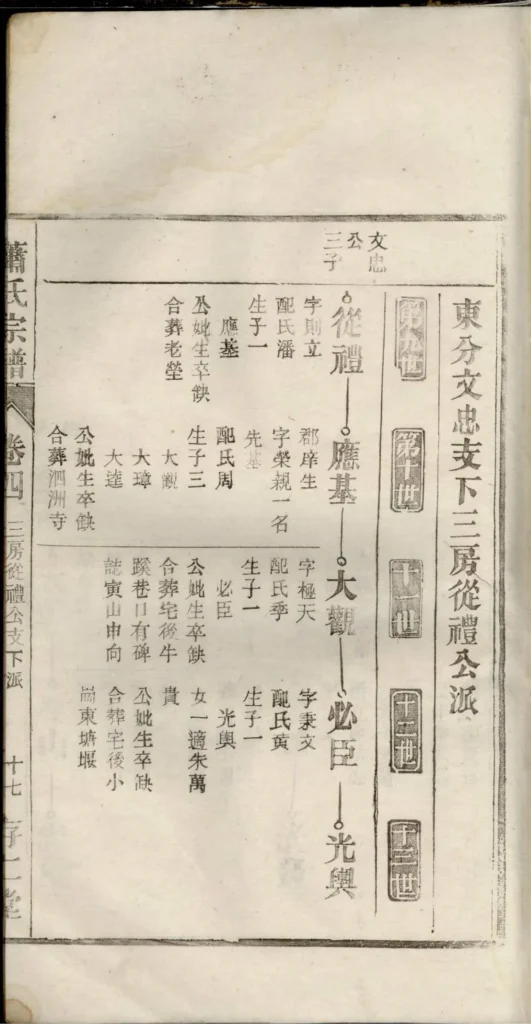 東分文忠支下三房從禮公派
第九世
第十世
十一世
十二世
十三世
文忠
公
三子
從禮
應基
大觀
必臣
光輿
字則立
配氏潘
生子一
應基
公妣生卒缺
合葬老塋
郡庠生
字榮親一名
先基
配氏周
生子三
大觀
大璋
大達
公妣生卒缺
合葬泗洲寺
字極天
配氏季
生子一
必臣
公妣生卒缺
合葬宅後牛
蹊巷口有碑
誌寅山申向
字秉文
配氏黃
生子一
光輿
女一適朱萬
貴
公妣生卒缺
合葬宅後小
崗東塘堰
蕭氏宗譜
卷四
三房從禮公支下派
十七
存仁堂